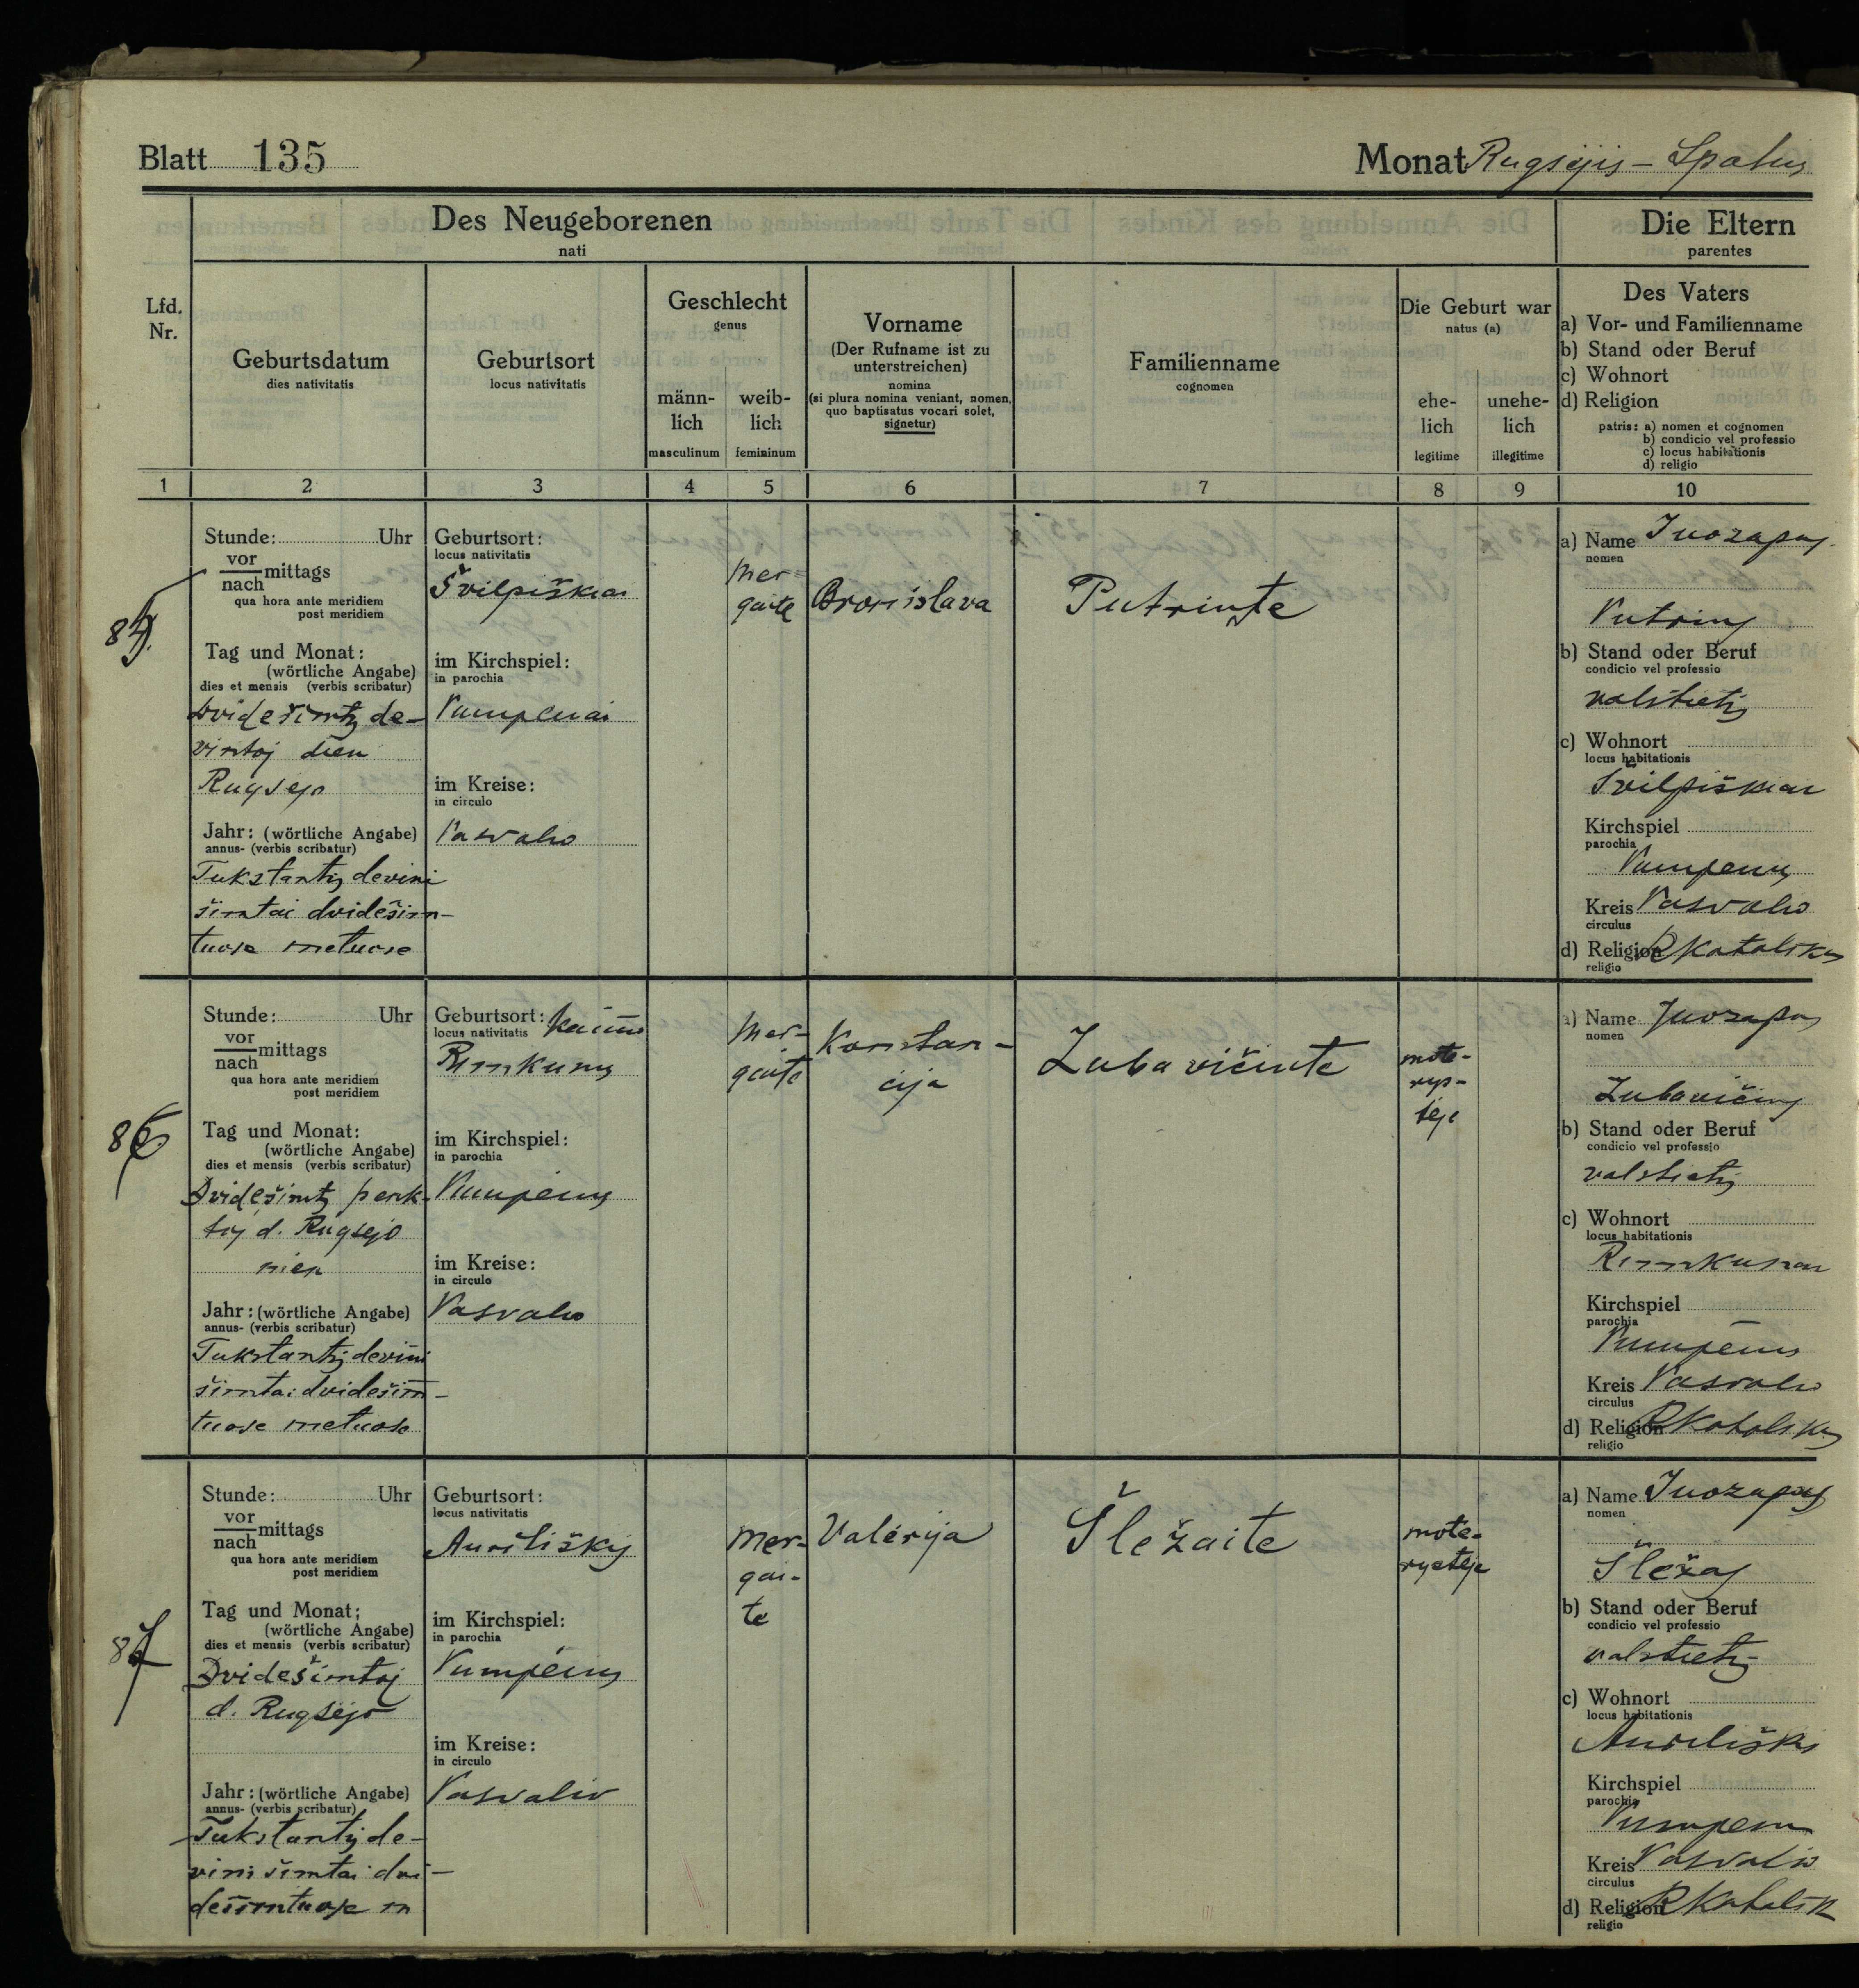 Blatt 135
Monat Rugsėjis – Spalius
Des Neugeborenen
nati
Die Eltern
parentes
Lfd.
Nr.
Geburtsdatum
dies nativitatis
Geburtsort
locus nativitatis
Geschlecht
genus
männ-
lich
masculinum
weib-
lich
femininum
Vorname
(Der Rufname ist zu
unterstreichen)
nomina
(si plura nomina veniant, nomen,
quo baptisatus vocari solet,
signetur)
Familienname
cognomen
Die Geburt war
natus (a)
ehe-
lich
legitime
unehe-
lich
illegitime
Des Vaters
a) Vor- und Familienname
b) Stand oder Beruf
c) Wohnort
d) Religion
patris: a) nomen et cognomen
b) condicio vel professio
c) locus habitationis
d) religio
1 2 3 4 5 6 7 8 9 10
85.
Stunde: Uhr
vor
nach mittags
qua hora ante meridiem
post meridiem
Tag und Monat:
(wörtliche Angabe)
dies et mensis (verbis scribatur)
Dvidešimtį de-
vintoj dien
Rugsejo
Jahr: (wörtliche Angabe)
annus- (verbis scribatur)
Tukstantis devini
šimtai dvidešim-
tuose metuose
Geburtsort:
locus nativitatis
Švilpiškiai
im Kirchspiel:
in parochia
Pumpenai
im Kreise:
in circulo
Pasvalio
Mer-
gaite
Bronislava
Putrinte
a) Name Juozapas
nomen
Putrins
b) Stand oder Beruf
condicio vel professio
valstietis
c) Wohnort
locus habitationis
Švilpiškiai
Kirchspiel
parochia
Pumpenų
Kreis Pasvalio
circulus
d) Religion R Katalikas
religio
86
Stunde: Uhr
vor
nach mittags
qua hora ante meridiem
post meridiem
Tag und Monat:
(wörtliche Angabe)
dies et mensis (verbis scribatur)
Dvidešimtį penk-
toj d. Rugsejo
mien
Jahr: (wörtliche Angabe)
annus- (verbis scribatur)
Tukstantis devini
šimtai dvidešim-
tuose metuose
Geburtsort: Kaimo
locus nativitatis
Rimkunų
im Kirchspiel:
in parochia
Pumpėnų
im Kreise:
in circulo
Pasvalio
Mer-
gaite
Konstan-
cija
Zubavičiute
mote-
rys-
tėje
a) Name Juozapas
nomen
Zubavičius
b) Stand oder Beruf
condicio vel professio
valstietis
c) Wohnort
locus habitationis
Rimkunai
Kirchspiel
parochia
Pumpėnų
Kreis Pasvalio
circulus
d) Religion R Katalikas
religio
87
Stunde: Uhr
vor
nach mittags
qua hora ante meridiem
post meridiem
Tag und Monat:
(wörtliche Angabe)
dies et mensis (verbis scribatur)
Dvidešimtoj
d. Rugsėjo
Jahr: (wörtliche Angabe)
annus- (verbis scribatur)
Tukstantis de-
vini šimtai dvi-
dešimtuose m
Geburtsort:
locus nativitatis
im Kirchspiel:
in parochia
Pumpėnų
im Kreise:
in circulo
Pasvalio
Mer-
gai-
te
Valėrija
Šležaite
mote-
rystėje
a) Name Juozapas
nomen
Šležas
b) Stand oder Beruf
condicio vel professio
valstietis
c) Wohnort
locus habitationis
Kirchspiel
parochia
Pumpenų
Kreis Pasvalio
circulus
d) Religion R Katalik
religio